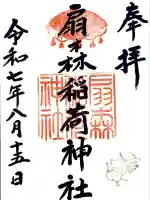 奉拝
扇森稲荷神社
令和七年八月十五日
扇森
神社